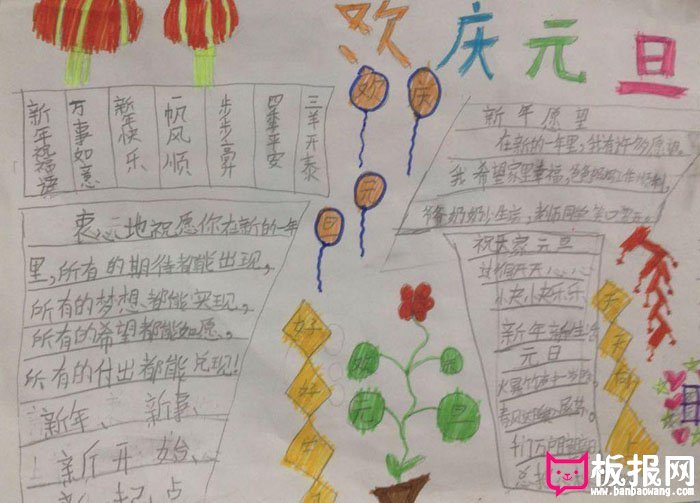 欢庆元旦
欢
庆
元
旦
新年祝福语
万事如意
新年快乐
一帆风顺
步步高升
四季平安
三羊开泰
衷心地祝愿你在新的一年
里,所有的期待都能出现,
所有的梦想都能实现,
所有的希望都能如愿,
所有的付出都能兑现!
新年、新事、
新开始、
新年愿望
在新的一年里,我有许多愿望。
我希望家里幸福,
祝大家元旦
过得开开心心
快快乐乐
新年新生活
元日
好
好
天
天
向
上
欢
乐
元
旦
板报网
www.banbaowang.com